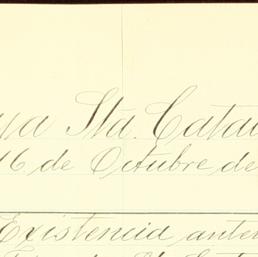 ya Sta. Catal
16 de Octubre de
Existencia anter